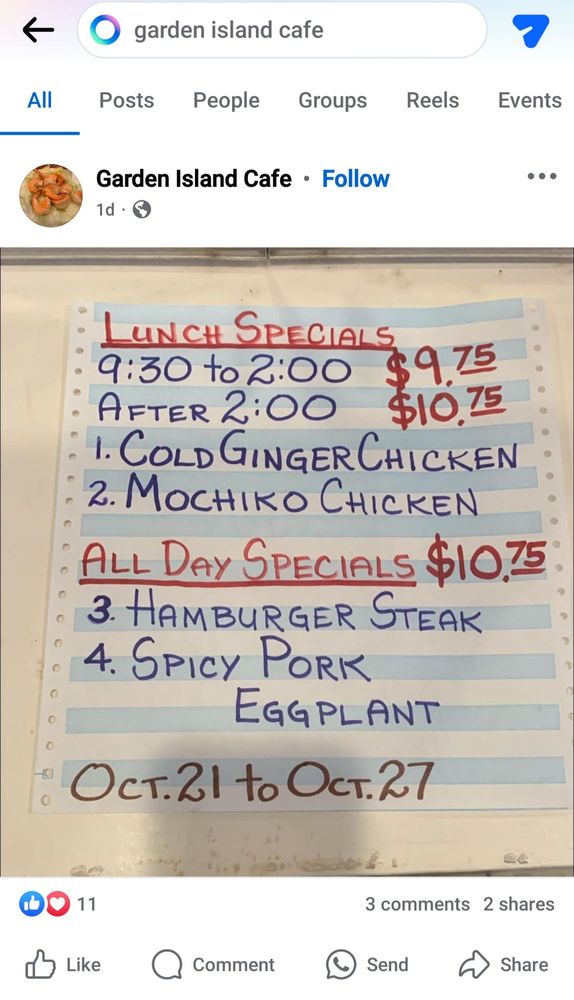 garden island cafe
All Posts People Groups Reels Events
Garden Island Cafe • Follow
1d ·
LUNCH SPECIALS
9:30 to 2:00 $9.75
AFTER 2:00 $10.75
1. COLD GINGER CHICKEN
2. MOCHIKO CHICKEN
ALL DAY SPECIALS $10.75
3. HAMBURGER STEAK
4. SPICY PORK
EGGPLANT
OCT. 21 to OCT. 27
11 3 comments 2 shares
Like Comment Send Share